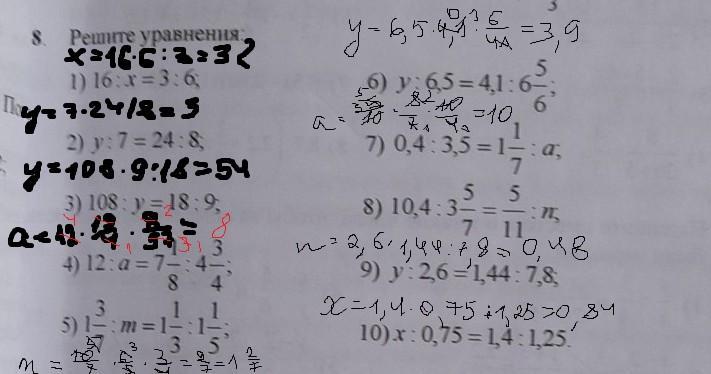 8. Решите уравнения:
x=16·6:3=32
1) 16 : x = 3 : 6;
y=7·24/8=3
2) y : 7 = 24 : 8;
y=108·9:18=54
3) 108 : y = 18 : 9;
a=12·
8
4) 12 : a = 7 1/8 : 4 3/4;
5) 1 3/7 : m = 1 1/3 : 1 1/5;
= 9/7 = 1 2/7
y=6,5·4,1· 6/41 =3,9
6) y : 6,5 = 4,1 : 6 5/6;
a= 35/10 · 8/7 · 10/4 =10
7) 0,4 : 3,5 = 1 1/7 : a;
8) 10,4 : 3 5/7 = 5/11 : n;
n=2,6·1,44:7,8=0,48
9) y : 2,6 = 1,44 : 7,8;
x=1,4·0,75:1,25=0,84
10) x : 0,75 = 1,4 : 1,25.